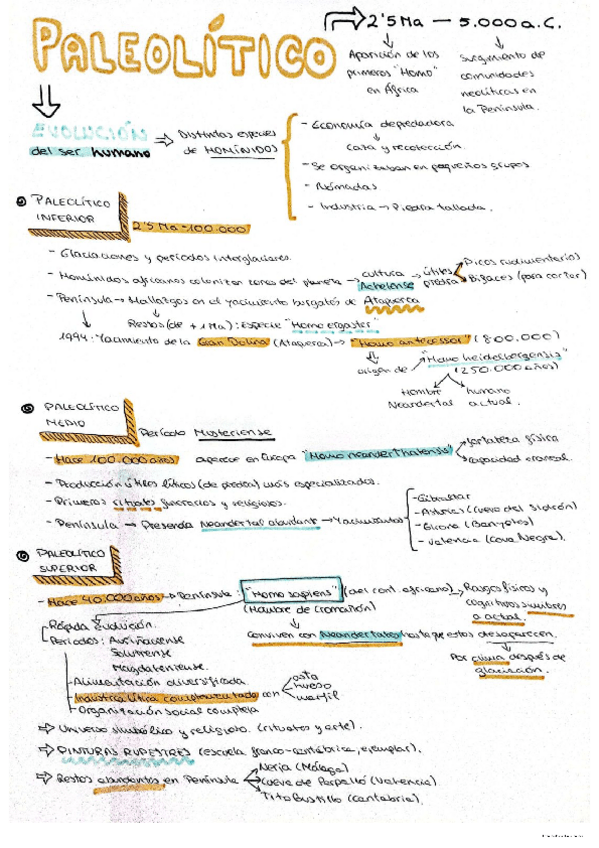 PALEOLÍTICO
2'5 Ma — 5.000 a.C.
Aparición de los
primeros "Homo"
en África
Surgimiento de
comunidades
neolíticas en
la Península.
EVOLUCIÓN
del ser humano
Distintas especies
de HOMÍNIDOS
- Economía depredadora
Caza y recolección.
- Se organizaban en pequeños grupos
- Nómadas
- Industria → Piedra tallada.
PALEOLÍTICO
INFERIOR
2'5 Ma - 100.000
- Glaciaciones y períodos interglaciares.
- Homínidos africanos colonizan zonas del planeta → cultura
Achelense
→ útiles
piedra
Picos rudimentarios
Bifaces (para cortar)
- Península → Hallazgos en el yacimiento burgalés de Atapuerca
Restos (de + 1 Ma): Especie "Homo ergaster"
1994: Yacimiento de la Gran Dolina (Atapuerca) → "Homo antecessor" (800.000)
origen de → "Homo heidelbergensis"
(250.000 años)
Hombre
Neandertal
humano
actual.
PALEOLÍTICO
MEDIO
Período Musteriense
- Hace 100.000 años aparece en Europa "Homo neanderthalensis"
fortaleza física
capacidad craneal.
- Producción útiles líticos (de piedra) más especializados.
- Primeros rituales funerarios y religiosos.
- Península → Presencia Neandertal abundante → Yacimientos
- Gibraltar
- Asturias (cueva del Sidrón)
- Girona (Banyoles)
- Valencia (Cova Negra).
PALEOLÍTICO
SUPERIOR
- Hace 40.000 años → Península: "Homo sapiens" (del cont. africano)
(Hombre de Cromañón)
→ Rasgos físicos y
cognitivos similares
a actual
Conviven con Neandertales hasta que estos desaparecen.
Por clima después de
glaciación.
Rápida evolución.
Períodos: Auriñaciense
Solutrense
Magdaleniense.
- Alimentación diversificada
- Industria lítica complementada con
asta
hueso
marfil
- Organización social compleja
⇒ Universo simbólico y religioso. (rituales y arte).
⇒ PINTURAS RUPESTRES (escuela franco-cantábrica, ejemplar).
⇒ Restos abundantes en Península
Nerja (Málaga)
Cueva de Parpalló (Valencia).
Tito Bustillo (Cantabria).